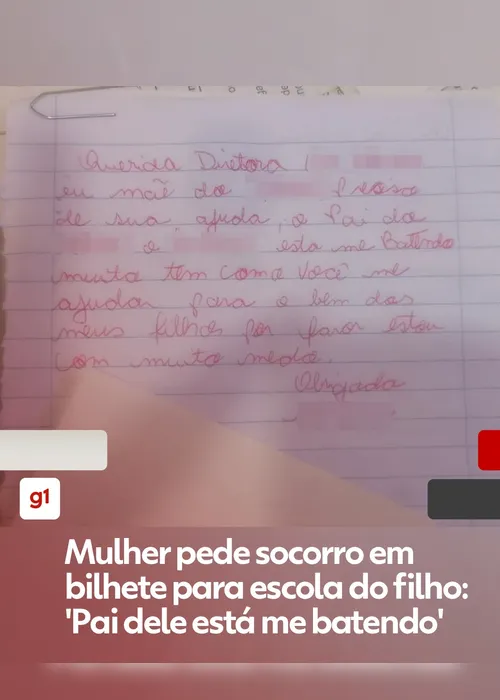 Querida Diretora
eu mãe do Preciso
de sua ajuda, o Pai do
e esta me Batendo
muito tem como você me
ajudar para o bem dos
meus filhos por favor estou
com muito medo.
Obrigada
g1
Mulher pede socorro em
bilhete para escola do filho:
'Pai dele está me batendo'